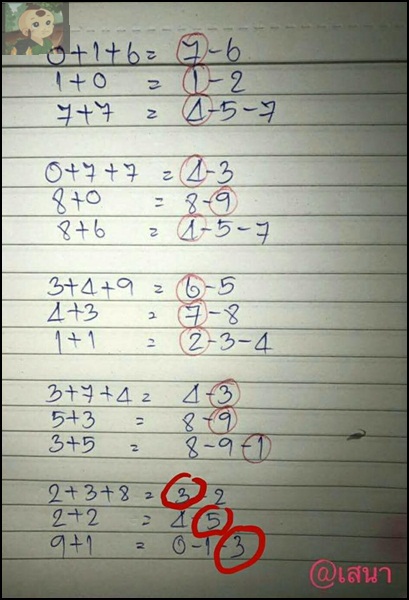 0+1+6= 7-6
1+0 = 1-2
7+7 = 4-5-7
0+7+7 = 4-3
8+0 = 8-9
8+6 = 4-5-7
3+4+9 = 6-5
4+3 = 7-8
1+1 = 2-3-4
3+7+4= 4-3
5+3 = 8-9
3+5 = 8-9-1
2+3+8= 3-2
2+2 = 4-5
9+1 = 0-1-3
@เสนา